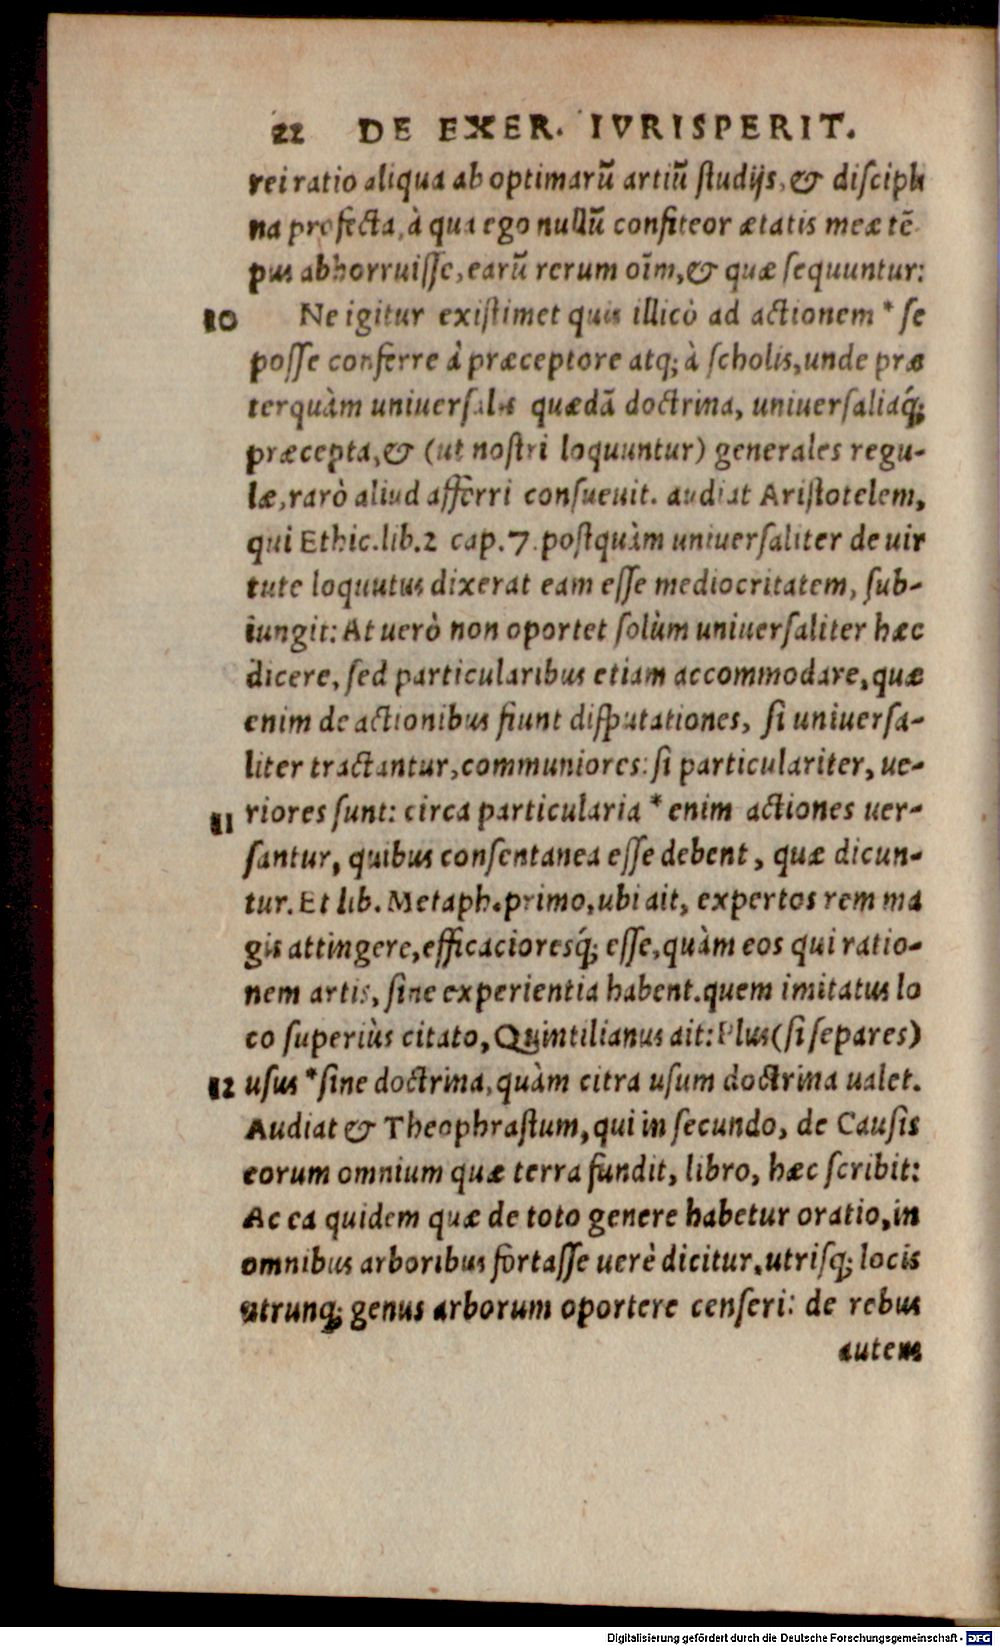 22 DE EXER. IVRISPERIT.
rei ratio aliqua ab optimarũ artiũ ſtudijs, & diſcipli
na profecta, à qua ego nullũ confiteor ætatis meæ tẽ
pus abhorruiſſe, earũ rerum oĩm, & quæ ſequuntur:
10 Ne igitur exiſtimet quis illicò ad actionem * ſe
poſſe conferre à præceptore atq; à ſcholis, unde præ
terquàm uniuerſalis quædã doctrina, uniuerſaliaq́;
præcepta, & (ut noſtri loquuntur) generales regu-
læ, rarò aliud afferri conſueuit. audiat Ariſtotelem,
qui Ethic. lib. 2 cap. 7. poſtquàm uniuerſaliter de uir
tute loquutus dixerat eam eſſe mediocritatem, ſub-
iungit: At uerò non oportet ſolùm uniuerſaliter hæc
dicere, ſed particularibus etiam accommodare, quæ
enim de actionibus fiunt diſputationes, ſi uniuerſa-
liter tractantur, communiores: ſi particulariter, ue-
11 riores ſunt: circa particularia * enim actiones uer-
ſantur, quibus conſentanea eſſe debent, quæ dicun-
tur. Et lib. Metaph. primo, ubi ait, expertos rem ma
gis attingere, efficacioresq́; eſſe, quàm eos qui ratio-
nem artis, ſine experientia habent. quem imitatus lo
co ſuperiùs citato, Quintilianus ait: Plus (ſi ſepares)
12 uſus * ſine doctrina, quàm citra uſum doctrina ualet.
Audiat & Theophraſtum, qui in ſecundo, de Cauſis
eorum omnium quæ terra fundit, libro, hæc ſcribit:
Ac ea quidem quæ de toto genere habetur oratio, in
omnibus arboribus fortaſſe uerè dicitur, utriſq; locis
utrunq; genus arborum oportere cenſeri: de rebus
autem
Digitalisierung gefördert durch die Deutsche Forschungsgemeinschaft - DFG